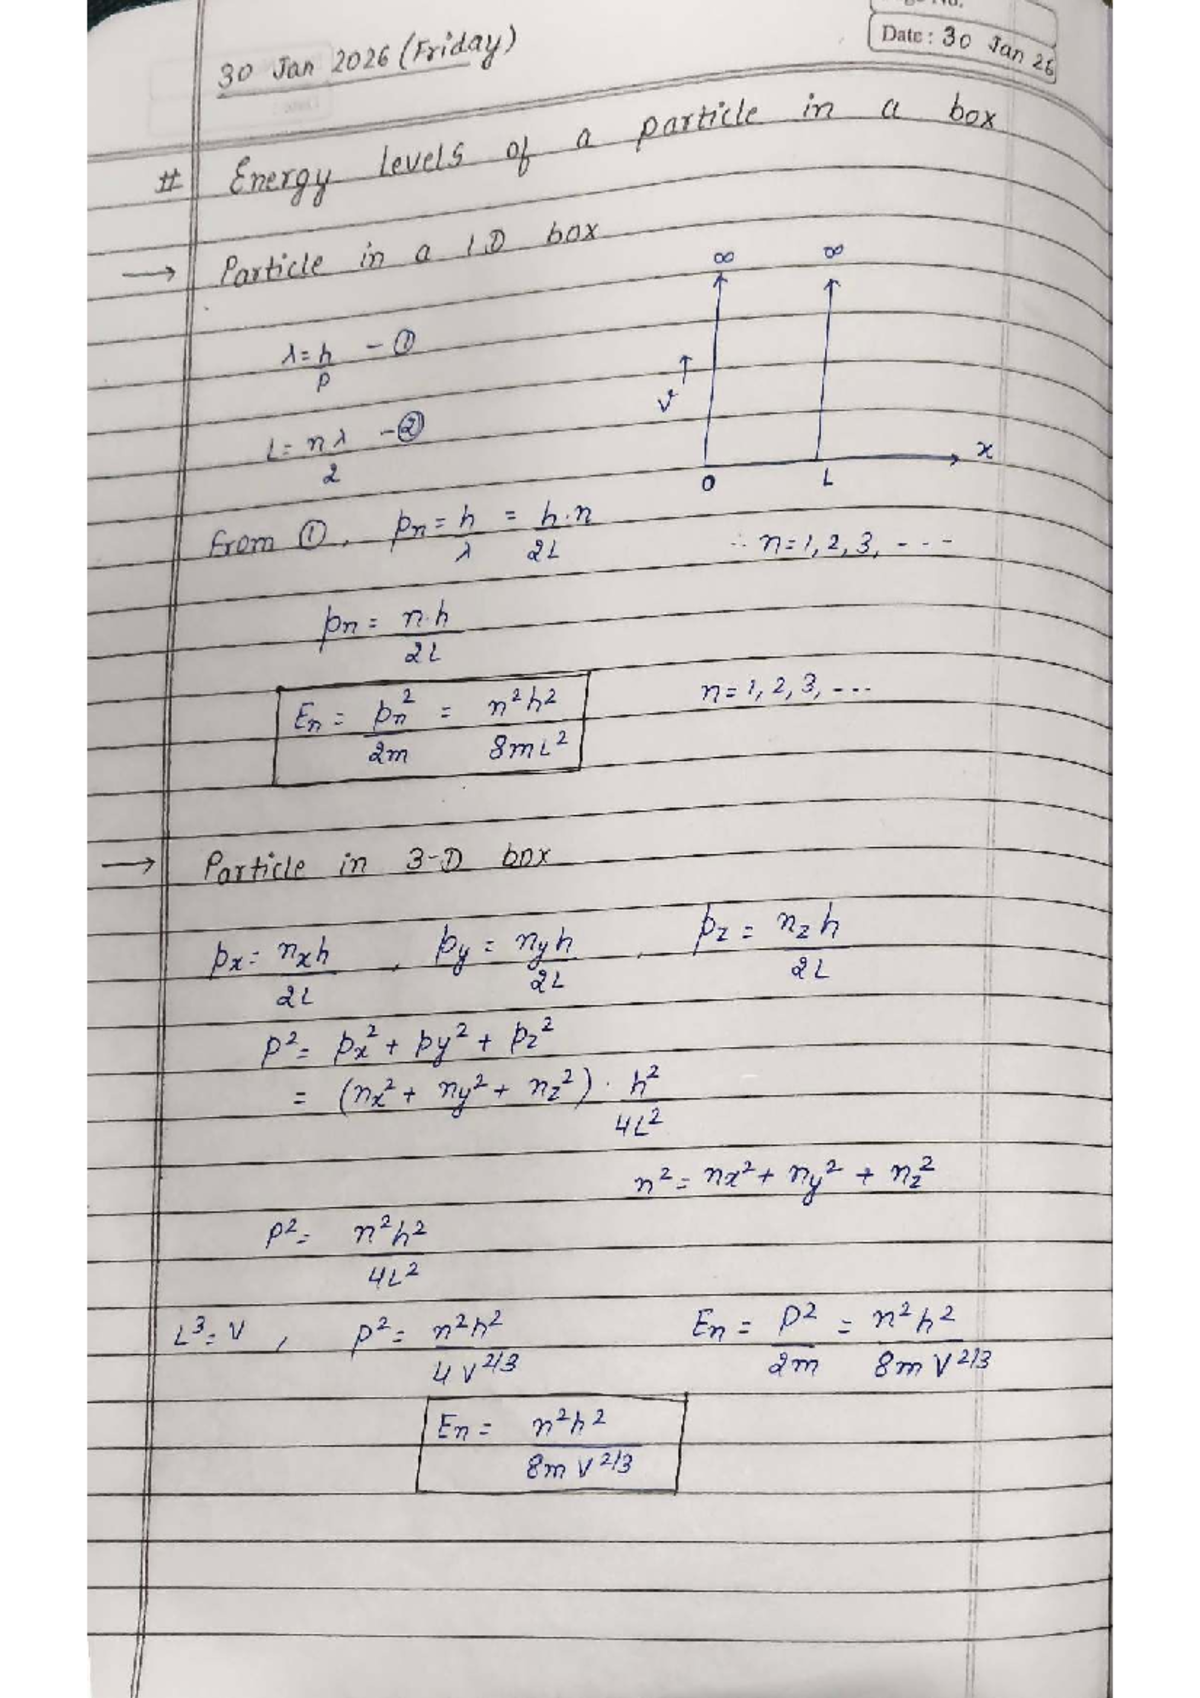 Date: 30 Jan 26
30 Jan 2026 (Friday)
# Energy levels of a particle in a box
→ Particle in a 1D box
∞ ∞
λ = h/p - ①
V ↑
L = nλ/2 - ②
x
0 L
From ①, pn = h/λ = h·n/2L ∴ n = 1, 2, 3, ----
pn = n·h/2L
En = pn²/2m = n²h²/8mL² n = 1, 2, 3, ---
→ Particle in 3-D box
px = nxh/2L , py = nyh/2L , pz = nzh/2L
P² = px² + py² + pz²
= (nx² + ny² + nz²) · h²/4L²
n² = nx² + ny² + nz²
P² = n²h²/4L²
L³ = V , P² = n²h²/4V^2/3 En = P²/2m = n²h²/8mV^2/3
En = n²h²/8mV^2/3